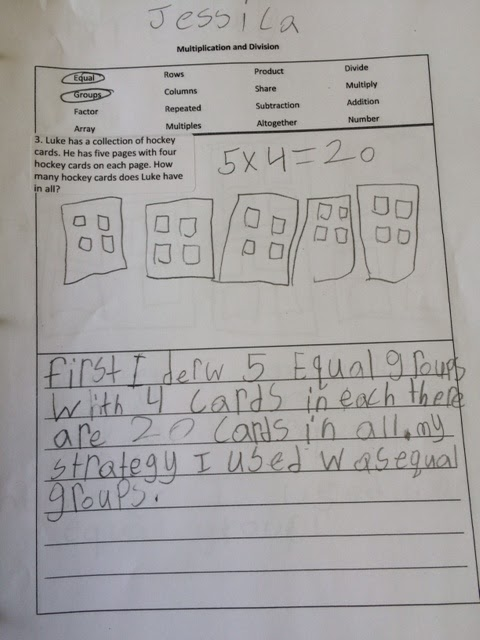 Jessica
Multiplication and Division
Equal Rows Product Divide
Groups Columns Share Multiply
Factor Repeated Subtraction Addition
Array Multiples Altogether Number
3. Luke has a collection of hockey
cards. He has five pages with four
hockey cards on each page. How
many hockey cards does Luke have
in all?
5x4=20
first I derw 5 Equal groups
with 4 cards in each there
are 20 cards in all. my
strategy I used was equal
groups.